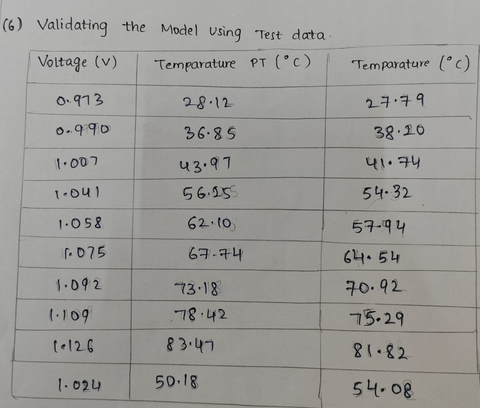 (6) Validating the Model Using Test data.
Voltage (V) Temparature PT (°C) Temparature (°C)
0.973 28.12 27.79
0.990 36.85 38.20
1.007 43.97 41.74
1.041 56.25 54.32
1.058 62.10 57.94
1.075 67.74 64.54
1.092 73.18 70.92
1.109 78.42 75.29
1.126 83.47 81.82
1.024 50.18 54.08